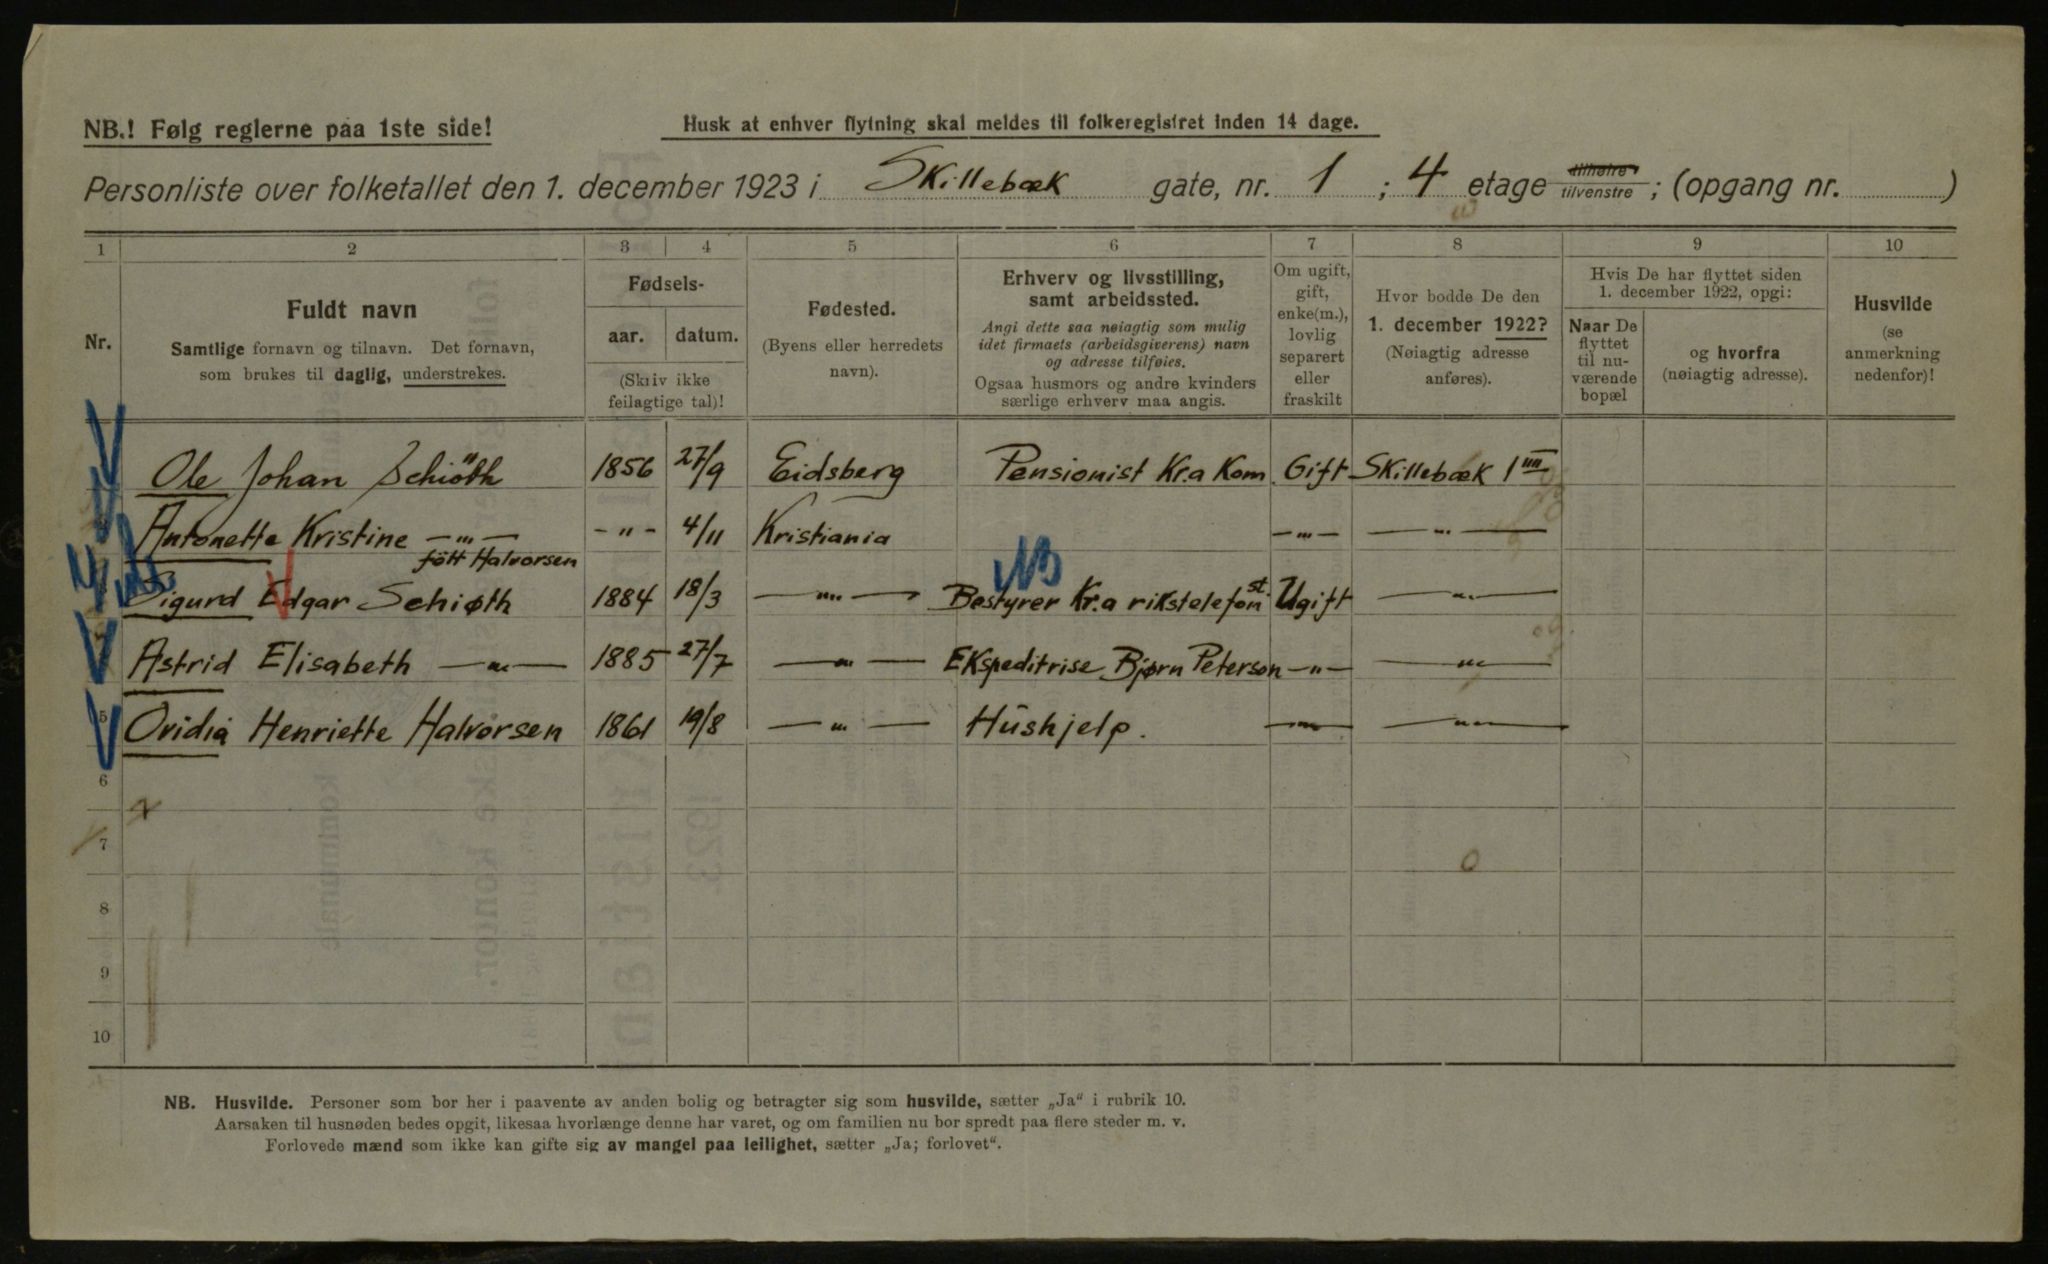 NB.! Følg reglerne paa 1ste side!
Husk at enhver flytning skal meldes til folkeregistret inden 14 dage.
Personliste over folketallet den 1. december 1923 i Skillebæk gate, nr. 1 ; 4 etage tilhøire tilvenstre ; (opgang nr. )
1 2 3 4 5 6 7 8 9 10
Nr.
Fuldt navn
Samtlige fornavn og tilnavn. Det fornavn,
som brukes til daglig, understrekes.
Fødsels-
aar. datum.
(Skriv ikke
feilagtige tal)!
Fødested.
(Byens eller herredets
navn).
Erhverv og livsstilling,
samt arbeidssted.
Angi dette saa nøiagtig som mulig
idet firmaets (arbeidsgiverens) navn
og adresse tilføies.
Ogsaa husmors og andre kvinders
særlige erhverv maa angis.
Om ugift,
gift,
enke(m.),
lovlig
separert
eller
fraskilt
Hvor bodde De den
1. december 1922?
(Nøiagtig adresse
anføres).
Hvis De har flyttet siden
1. december 1922, opgi:
Naar De
flyttet
til nu-
værende
bopæl
og hvorfra
(nøiagtig adresse).
Husvilde
(se
anmerkning
nedenfor)!
Ole Johan Schiöth 1856 27/9 Eidsberg Pensionist Kr.a Kom. Gift Skillebæk 1 IIII
Antonette Kristine —"— —"— 4/11 Kristiania —"— —"—
fött Halvorsen
NB
Sigurd Edgar Schiøth 1884 18/3 —"— Bestyrer Kr.a rikstelefonst. Ugift —"—
Astrid Elisabeth —"— 1885 27/7 —"— Ekspeditrise Bjørn Peterson —"— —"—
5 Ovidia Henriette Halvorsen 1861 19/8 —"— Hushjelp. —"— —"—
6
7
8
9
10
NB. Husvilde. Personer som bor her i paavente av anden bolig og betragter sig som husvilde, sætter „Ja“ i rubrik 10.
Aarsaken til husnøden bedes opgit, likesaa hvorlænge denne har varet, og om familien nu bor spredt paa flere steder m. v.
Forlovede mænd som ikke kan gifte sig av mangel paa leilighet, sætter „Ja; forlovet“.